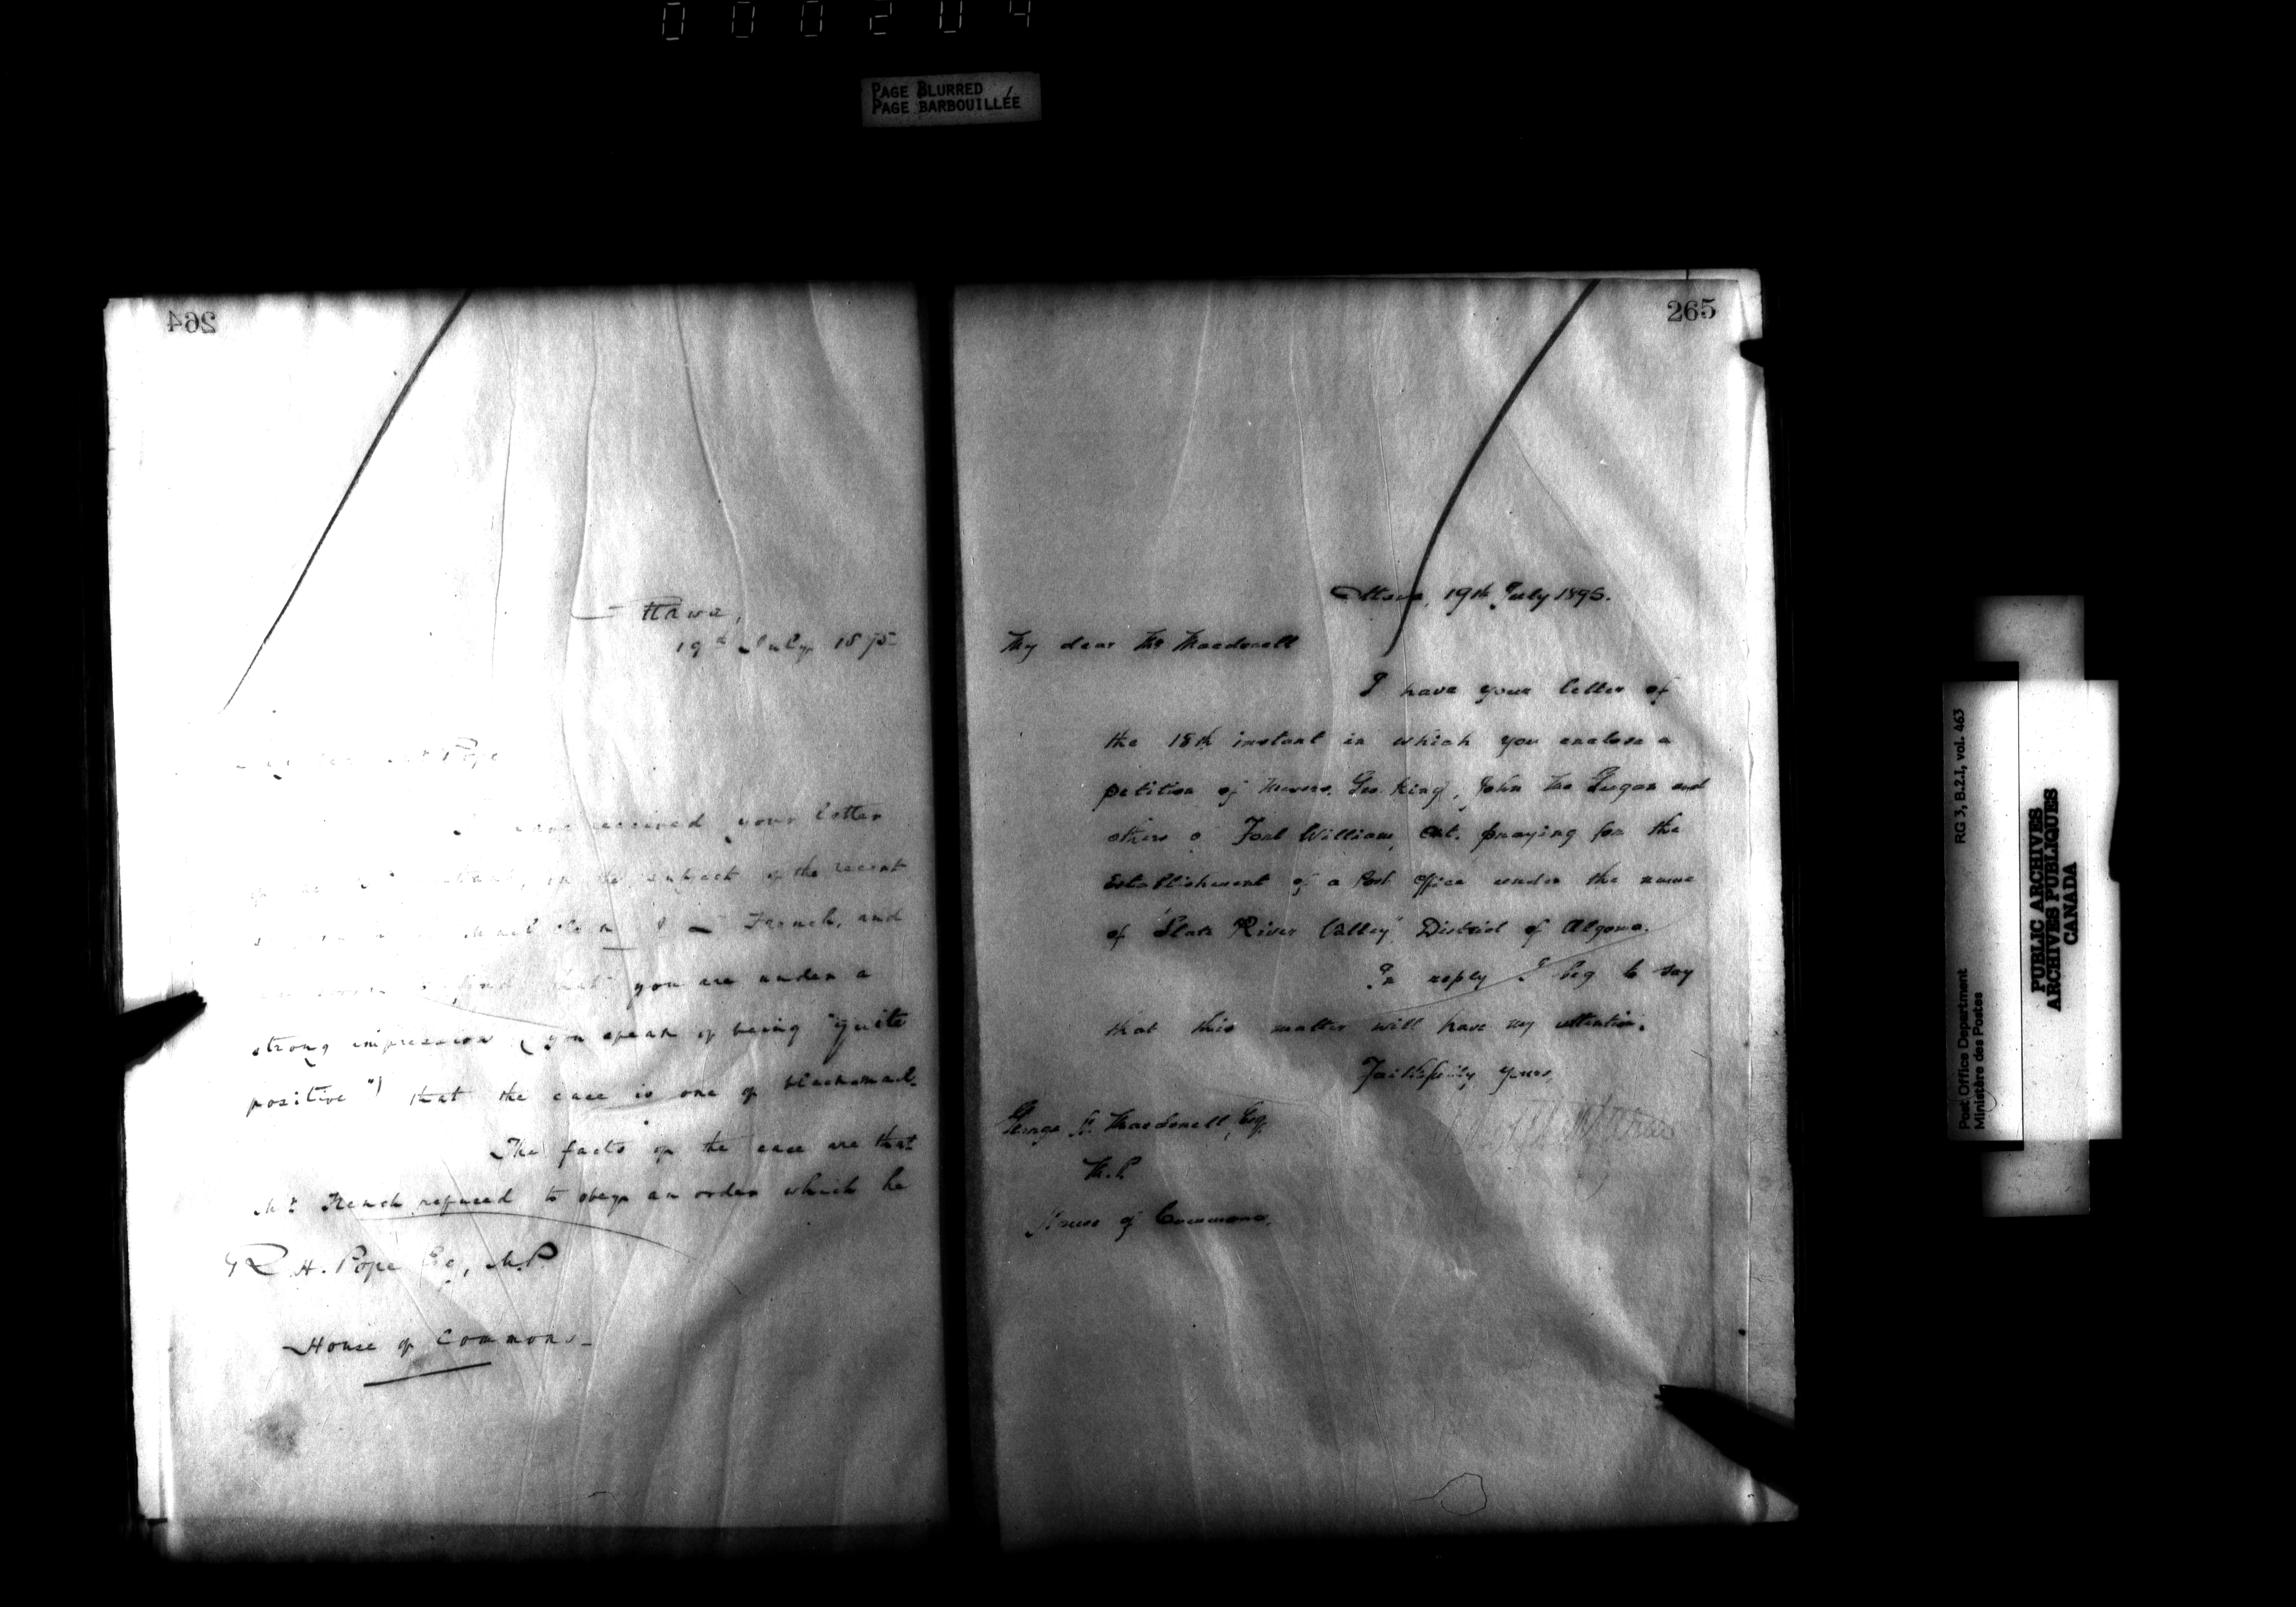 000204
PAGE BLURRED
PAGE BARBOUILLÉE
264
Ottawa,
19th July 1895
Pope
received your letter
the subject of the recent
Mail Clerk French, and
find that you are under a
strong impression (you speak of being "quite
positive") that the case is one of blackmail.
The facts of the case are that
Mr French refused to obey an order which he
R H. Pope Esq, M.P
House of Commons
265
Ottawa, 19th July 1895.
My dear Mr Macdonell
I have your letter of
the 18th instant in which you enclose a
petition of Messrs. Geo. King, John and
others of Fort William, Ont. praying for the
Establishment of a Post Office under the name
of "Slate River Valley" District of Algoma.
In reply I beg to say
that this matter will have my attention.
Faithfully yours,
George Macdonell, Esq.
M.P
House of Commons.
Post Office Department
Ministère des Postes
RG 3, B.2.1, vol. 463
PUBLIC ARCHIVES
ARCHIVES PUBLIQUES
CANADA